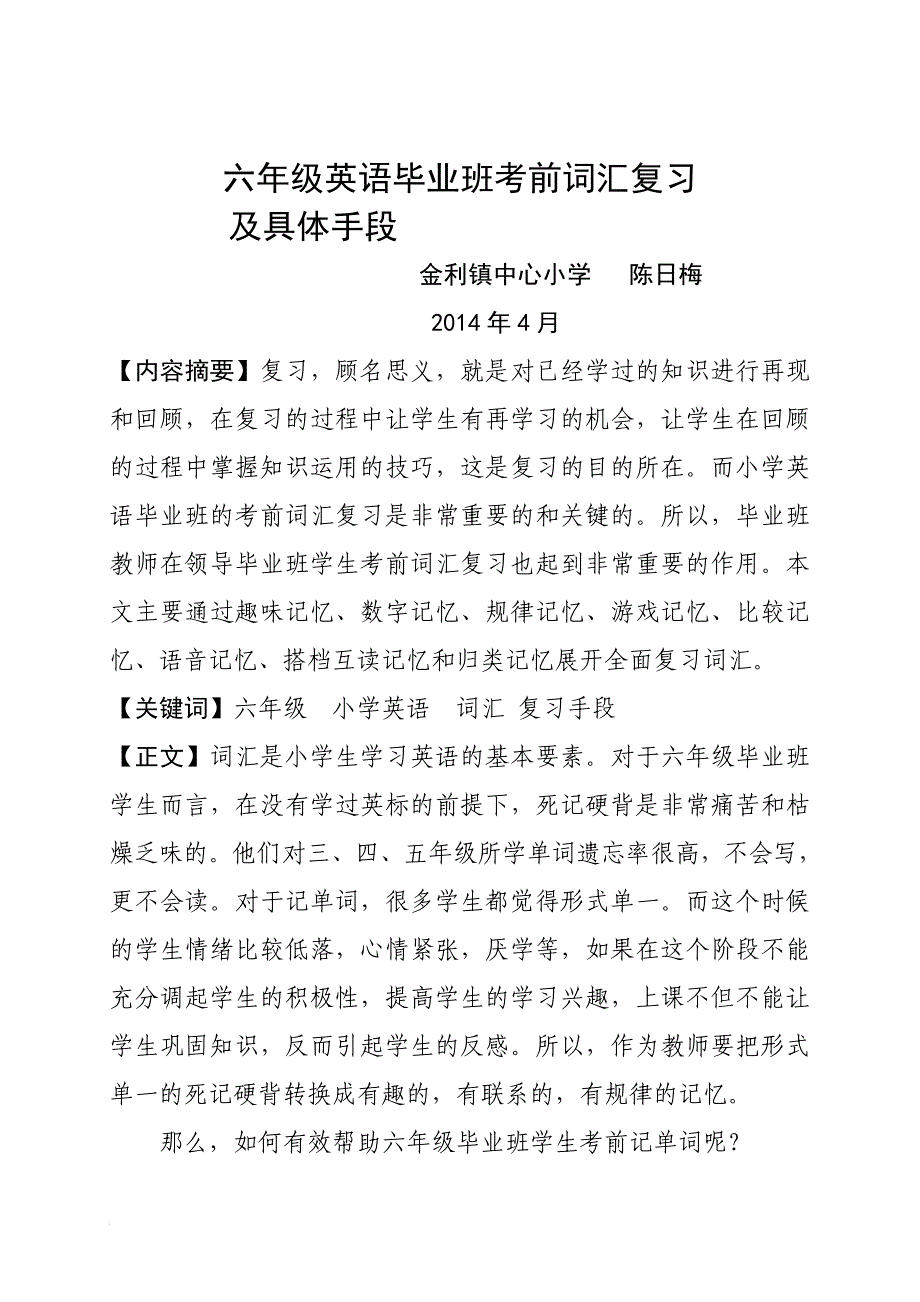 六年级英语毕业班考前词汇复习
及具体手段
金利镇中心小学 陈日梅
2014年4月
【内容摘要】复习，顾名思义，就是对已经学过的知识进行再现
和回顾，在复习的过程中让学生有再学习的机会，让学生在回顾
的过程中掌握知识运用的技巧，这是复习的目的所在。而小学英
语毕业班的考前词汇复习是非常重要的和关键的。所以，毕业班
教师在领导毕业班学生考前词汇复习也起到非常重要的作用。本
文主要通过趣味记忆、数字记忆、规律记忆、游戏记忆、比较记
忆、语音记忆、搭档互读记忆和归类记忆展开全面复习词汇。
【关键词】六年级 小学英语 词汇 复习手段
【正文】词汇是小学生学习英语的基本要素。对于六年级毕业班
学生而言，在没有学过英标的前提下，死记硬背是非常痛苦和枯
燥乏味的。他们对三、四、五年级所学单词遗忘率很高，不会写，
更不会读。对于记单词，很多学生都觉得形式单一。而这个时候
的学生情绪比较低落，心情紧张，厌学等，如果在这个阶段不能
充分调起学生的积极性，提高学生的学习兴趣，上课不但不能让
学生巩固知识，反而引起学生的反感。所以，作为教师要把形式
单一的死记硬背转换成有趣的，有联系的，有规律的记忆。
那么，如何有效帮助六年级毕业班学生考前记单词呢？